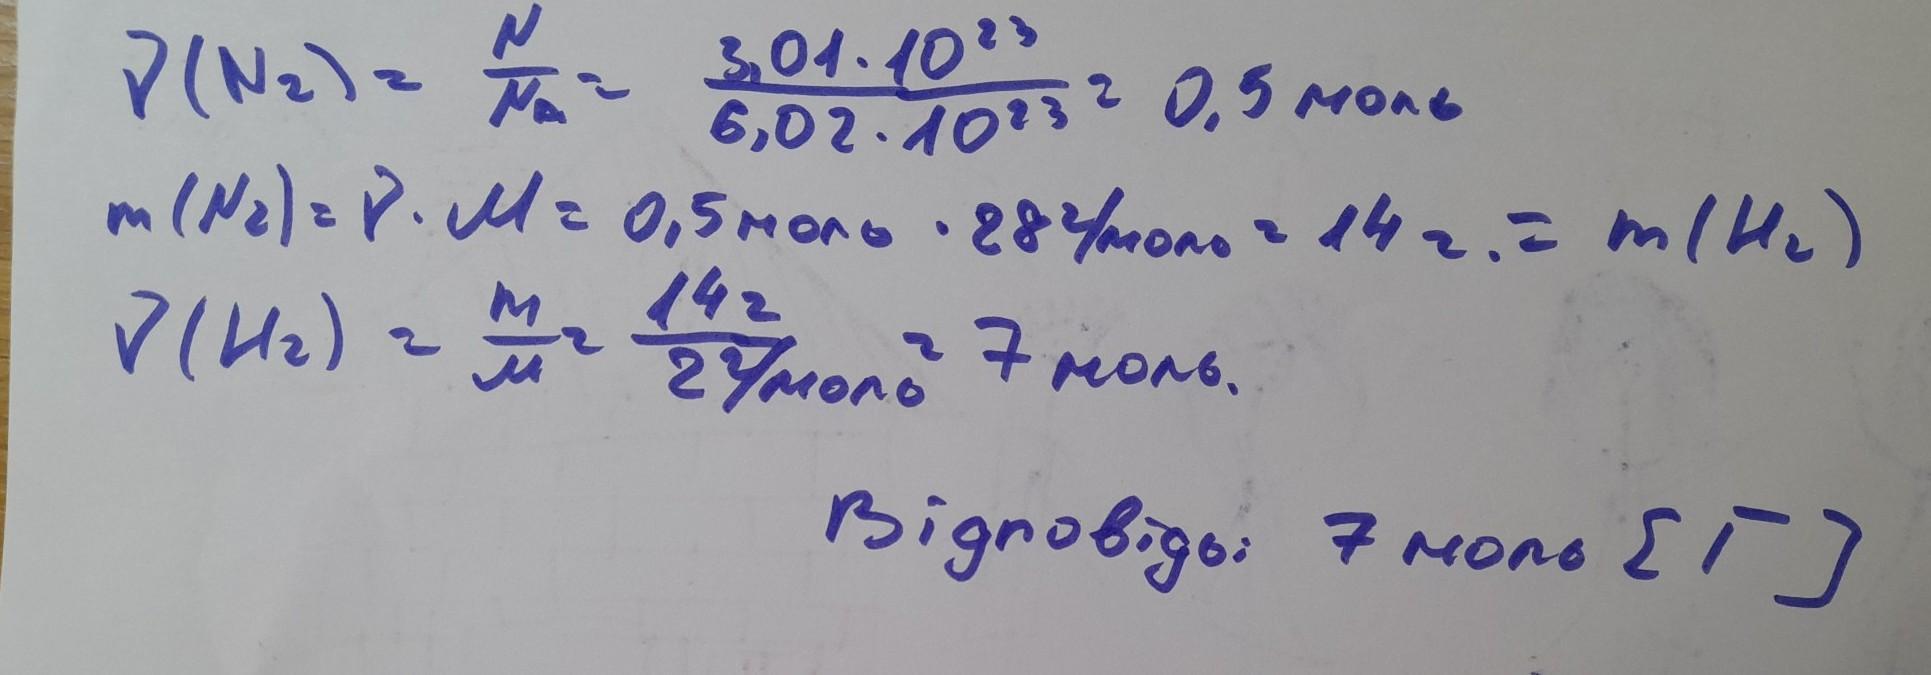 ν(N₂) = N/Nₐ = 3,01·10²³/6,02·10²³ = 0,5 моль
m(N₂) = ν·M = 0,5 моль · 28 г/моль = 14 г. = m(H₂)
ν(H₂) = m/M = 14 г/2 г/моль = 7 моль.
Відповідь: 7 моль [Г]